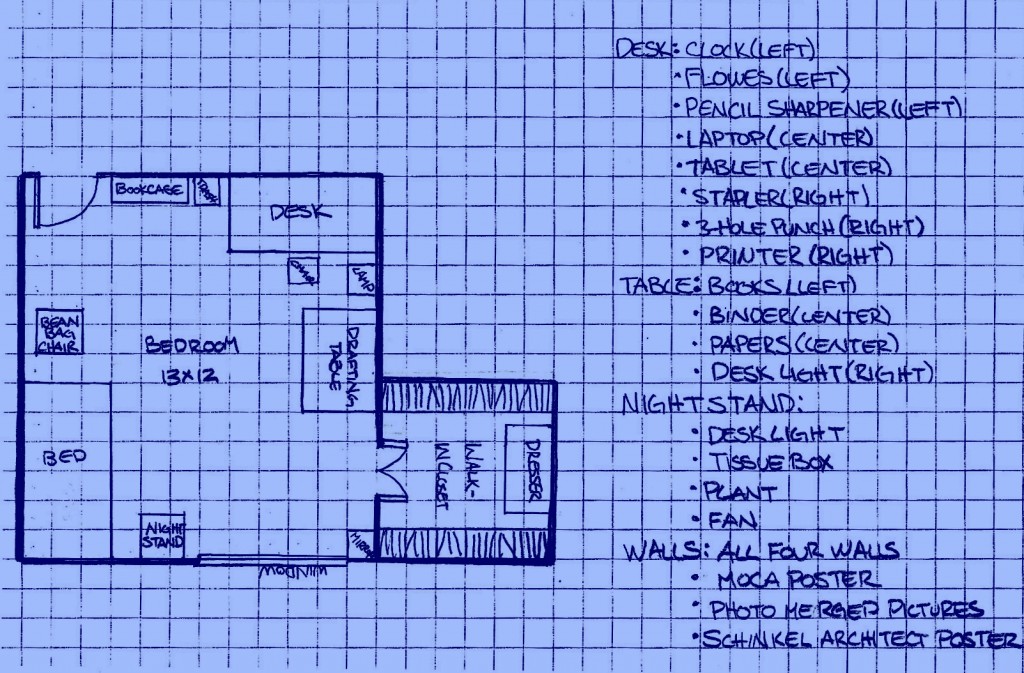 DESK: CLOCK(LEFT)
• FLOWES(LEFT)
• PENCIL SHARPENER(LEFT)
• LAPTOP(CENTER)
• TABLET(CENTER)
• STAPLER(RIGHT)
• 3-HOLE PUNCH(RIGHT)
• PRINTER(RIGHT)
TABLE: BOOKS(LEFT)
• BINDER(CENTER)
• PAPERS(CENTER)
• DESK LIGHT(RIGHT)
NIGHT STAND:
• DESK LIGHT
• TISSUE BOX
• PLANT
• FAN
WALLS: ALL FOUR WALLS
• MOCA POSTER
• PHOTO MERGED PICTURES
• SCHINKEL ARCHITECT POSTER
BOOKCASE
DESK
CHAIR
LAMP
BEAN
BAG
CHAIR
BEDROOM
13X12
DRAFTING
TABLE
BED
WALK-
IN CLOSET
DRESSER
NIGHT
STAND
MIRROR
WINDOW